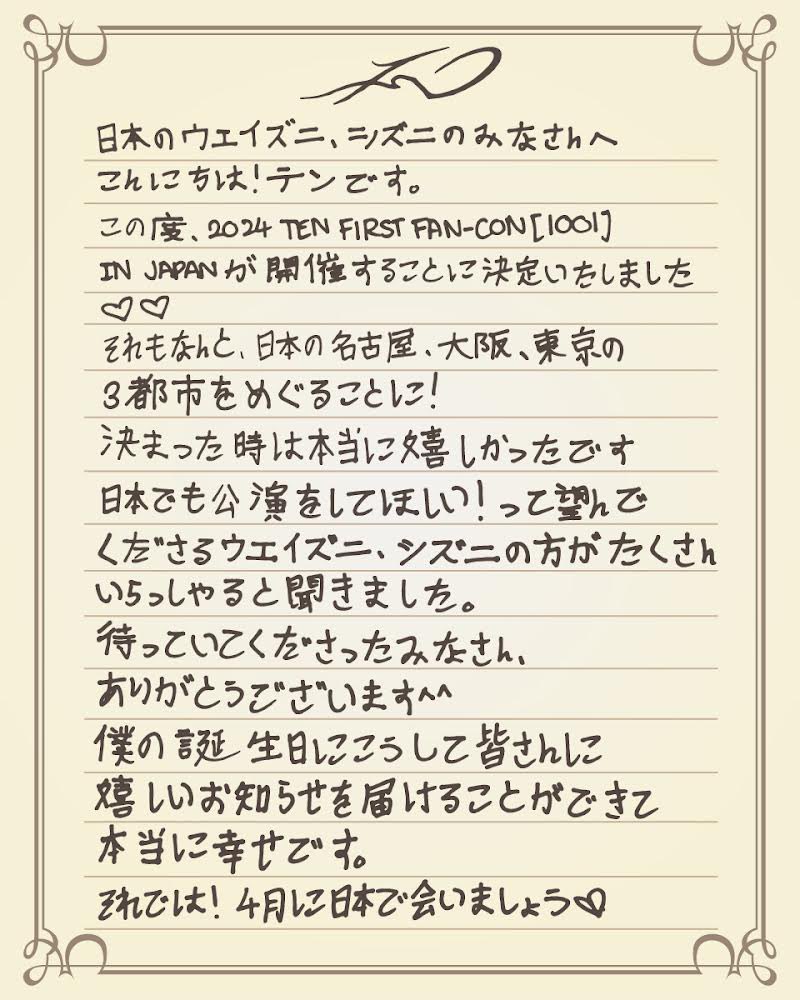 日本のウェイズニ、シズニのみなさんへ
こんにちは！テンです。
この度、2024 TEN FIRST FAN-CON[1001]
IN JAPANが開催することに決定いたしました
♡♡
それもなんと、日本の名古屋、大阪、東京の
3都市をめぐることに！
決まった時は本当に嬉しかったです
日本でも公演をしてほしい！って望んで
くださるウェイズニ、シズニの方がたくさん
いらっしゃると聞きました。
待っていてくださったみなさん、
ありがとうございます^^
僕の誕生日にこうして皆さんに
嬉しいお知らせを届けることができて
本当に幸せです。
それでは！4月に日本で会いましょう♡